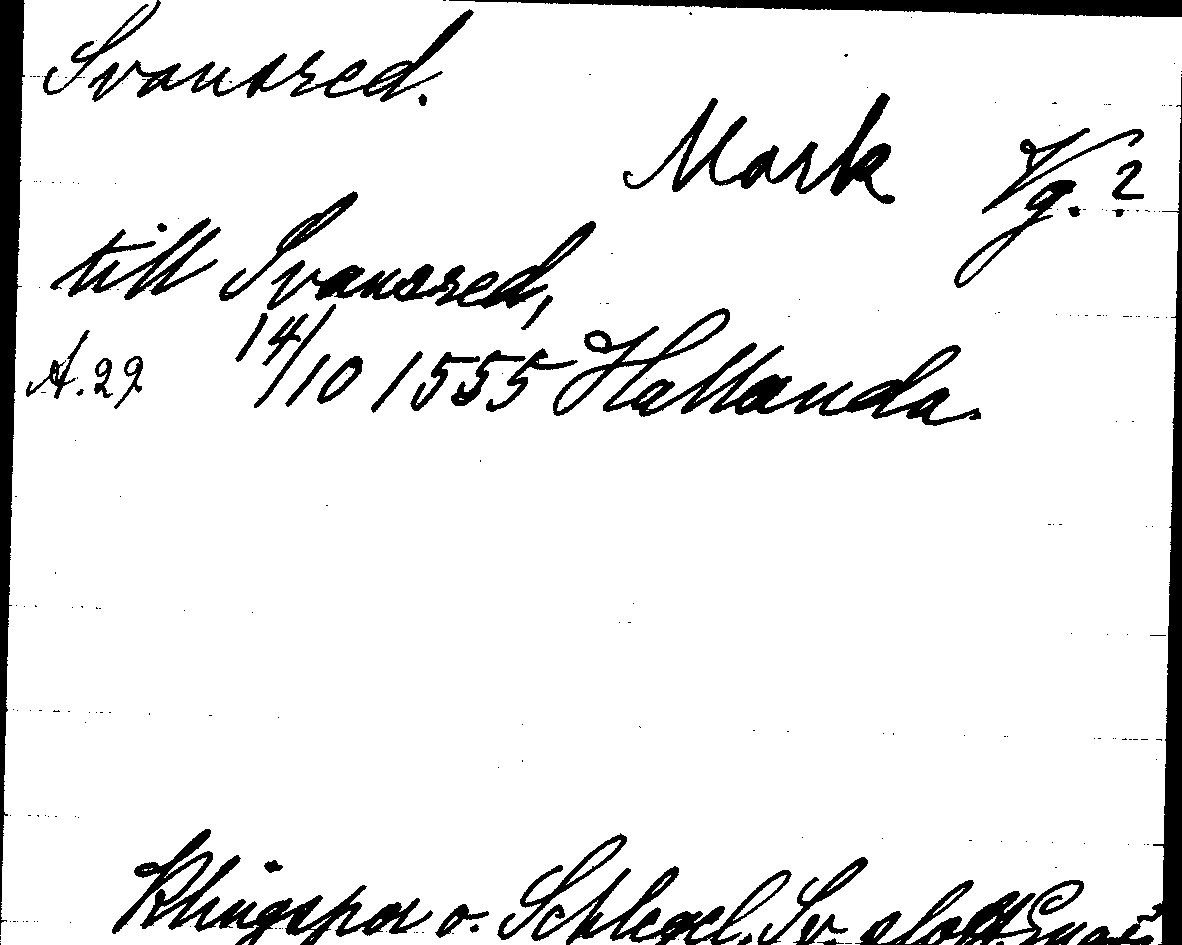 Svansred.
Mark Vg.?
till Svansred,
A.29 14/10 1555 Hallanda.
Klingspor o. Schlegel. Sv. slott.